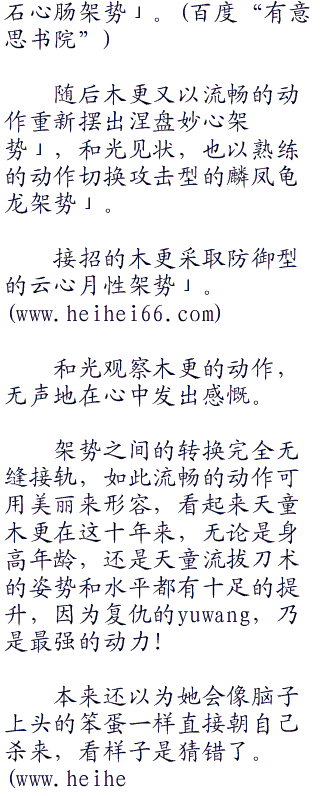 石心肠架势」。(百度“有意
思书院”)
随后木更又以流畅的动
作重新摆出涅盘妙心架
势」，和光见状，也以熟练
的动作切换攻击型的麟凤龟
龙架势」。
接招的木更采取防御型
的云心月性架势」。
(www.heihei66.com)
和光观察木更的动作，
无声地在心中发出感慨。
架势之间的转换完全无
缝接轨，如此流畅的动作可
用美丽来形容，看起来天童
木更在这十年来，无论是身
高年龄，还是天童流拔刀术
的姿势和水平都有十足的提
升，因为复仇的yuwang，乃
是最强的动力!
本来还以为她会像脑子
上头的笨蛋一样直接朝自己
杀来，看样子是猜错了。
(www.heihe